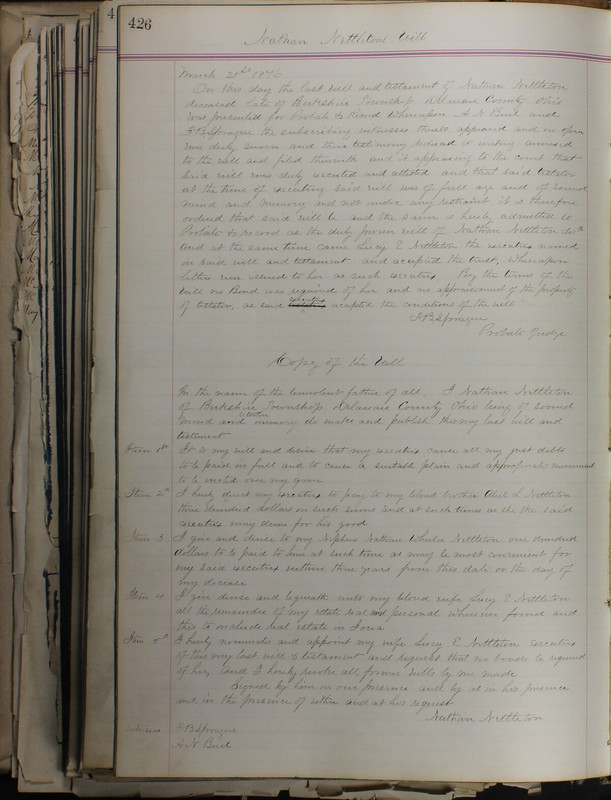 426
4
4
Nathan Nettletons Will
March 21st 1876
On this day the last will and testament of Nathan Nettleton
deceased late of Berkshire Township Delaware County Ohio
was presented for Probate & Record Whereupon A N Buel and
F B Sprague the subscribing witnesses thereto appeared and in open
were duly sworn and their testimony reduced to writing annexed
to the will and filed therewith and it appearing to the court that
said will was duly executed and attested and that said testator
at the time of executing said will was of full age and of sound
mind and memory and not under any restraint it is therefore
ordered that said will be and the same is hereby admitted to
Probate & record as the duly proven will of Nathan Nettleton decd
and at the same time came Lucy E Nettleton the executrix named
in said will and testament and accepted the trust, Whereupon
letters were issued to her as such executrix By the terms of the
will no Bond was required of her and no appraisement of the property
of testator, as said executrix accepted the conditions of the will
F B Sprague
Probate Judge
Copy of the Will
In the name of the benevolent father of all. I Nathan Nettleton
of Berkshire Township Delaware County Ohio being of sound
mind and memory do make and publish this my last will and
testament
Item 1st It is my will and desire that my executrix cause all my just debts
to be paid in full and to cause a suitable plain and appropriate monument
to be erected over my grave
Item 2d I hereby direct my executrix to pay to my beloved brother L Nettleton
three hundred dollars in such sums and at such times as she the said
executrix may deem for his good
Item 3 I give and devise to my Nephew Nathan Wheeler Nettleton one hundred
dollars to be paid to him at such time as may be most convenient for
my said executrix within three years from this date or the day of
my decease
Item 4 I give devise and bequeath unto my beloved wife Lucy E Nettleton
all the remainder of my estate real and personal wherever found and
this to include real estate in Iowa
Item 5th I hereby nominate and appoint my wife Lucy E Nettleton executrix
of this my last will & testament and request that no bonds be required
of her, and I hereby revoke all former wills by me made
Signed by him in our presence and by us in his presence
and in the presence of each other and at his request
Nathan Nettleton
witnesses F B Sprague
A N Buel